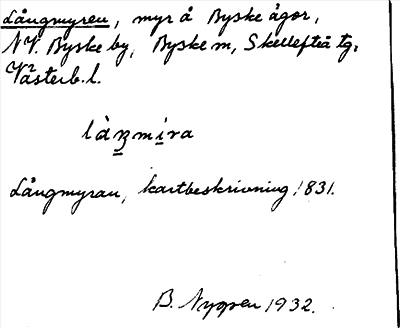 Långmyren, myr å Byske ägor,
NV. Byske by, Byske m, Skellefteå tg,
Västerb. l.
làŋmira
Långmyran, kartbeskrivning 1831.
B. Nygren 1932.